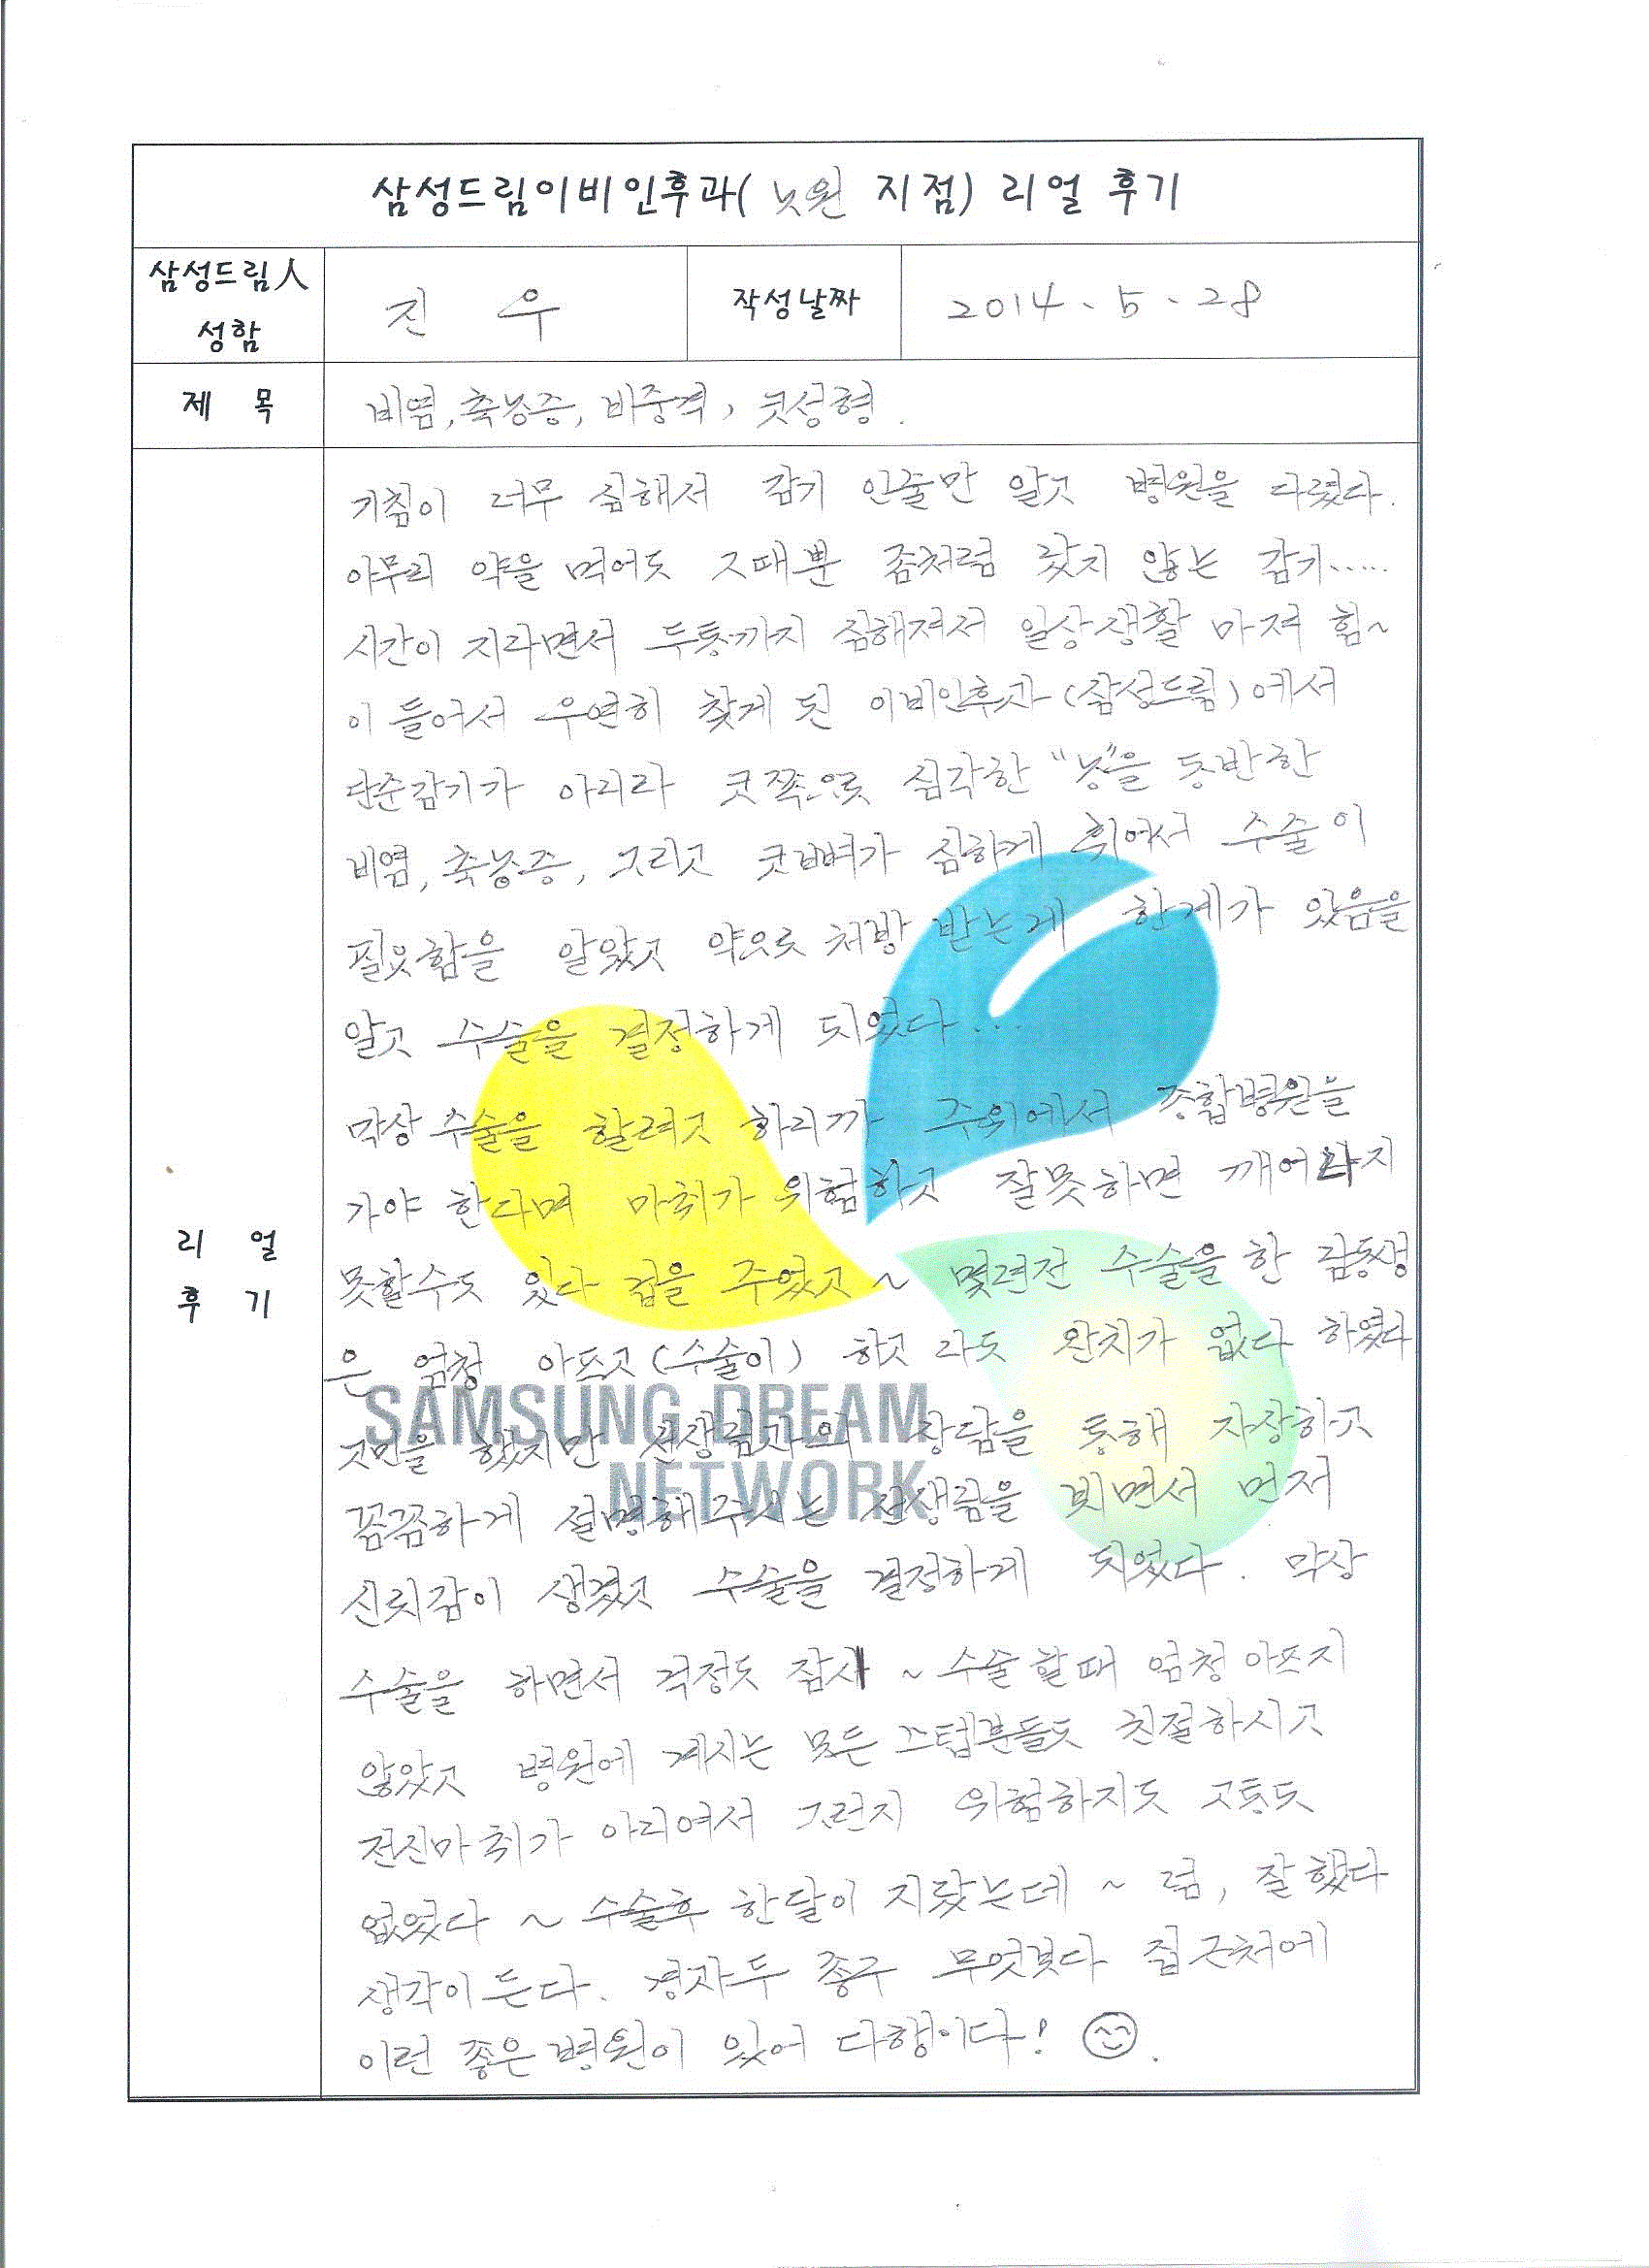 삼성드림이비인후과( 노원 지점) 리얼 후기
삼성드림人
성함
진 우
작성날짜
2014. 5. 28
제 목
비염, 축농증, 비중격, 코성형.
기침이 너무 심해서 감기 인줄만 알고 병원을 다녔다.
아무리 약을 먹어도 그때뿐 좀처럼 낫지 않는 감기.....
시간이 지나면서 두통까지 심해져서 일상생활 마져 힘~
이 들어서 우연히 찾게 된 이비인후과(삼성드림)에서
단순감기가 아니라 콧쪽으로 심각한 "농"을 동반한
비염, 축농증, 그리고 콧뼈가 심하게 휘어서 수술이
필요함을 알았고 약으로 처방 받는게 한계가 있음을
알고 수술을 결정하게 되었다...
막상 수술을 할려고 하니까 주위에서 종합병원을
가야 한다며 마취가 위험하고 잘못하면 깨어나지
못할수도 있다 겁을 주었고 ~ 몇년전 수술을 한 남동생
은 엄청 아프고 (수술이) 하고 나도 완치가 없다 하였다
고민을 했지만 선생님과의 상담을 통해 자상하고
꼼꼼하게 설명해주시는 선생님을 뵈면서 먼저
신뢰감이 생겼고 수술을 결정하게 되었다. 막상
수술을 하면서 걱정도 잠시 ~ 수술할때 엄청 아프지
않았고 병원에 계시는 모든 스텝분들도 친절하시고
전신마취가 아니여서 그런지 위험하지도 고통도
없었다 ~ 수술후 한달이 지났는데 ~ 넘, 잘했다
생각이 든다. 경자두 좋구 무엇보다 집근처에
이런 좋은 병원이 있어 다행이다!
리 얼
후 기
SAMSUNG DREAM
NETWORK